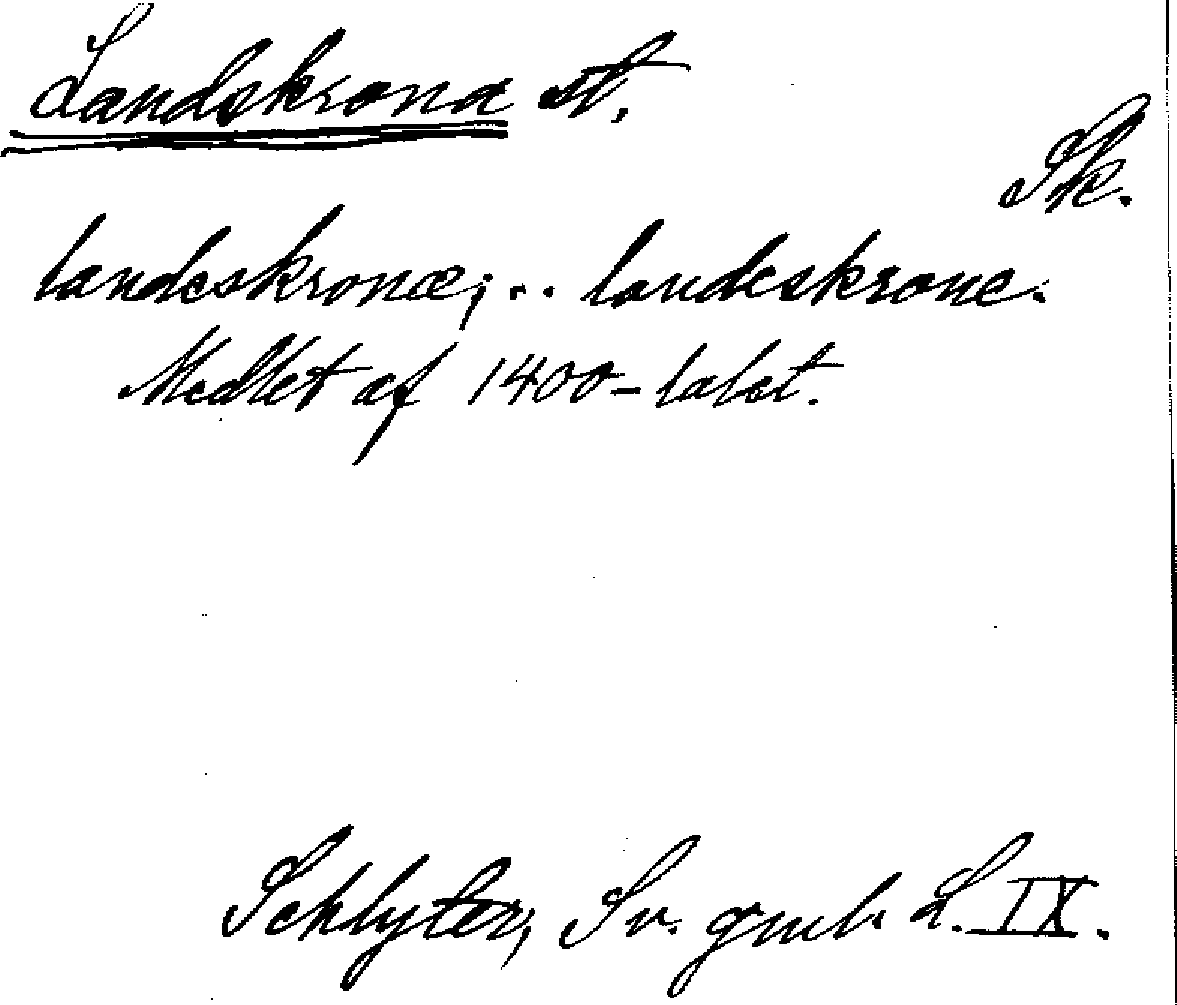 Landskrona st.
Sk.
landeskronæ; .. landeskrone.
Medlet af 1400-talet.
Schlyter, Sv. gml. L. IX.